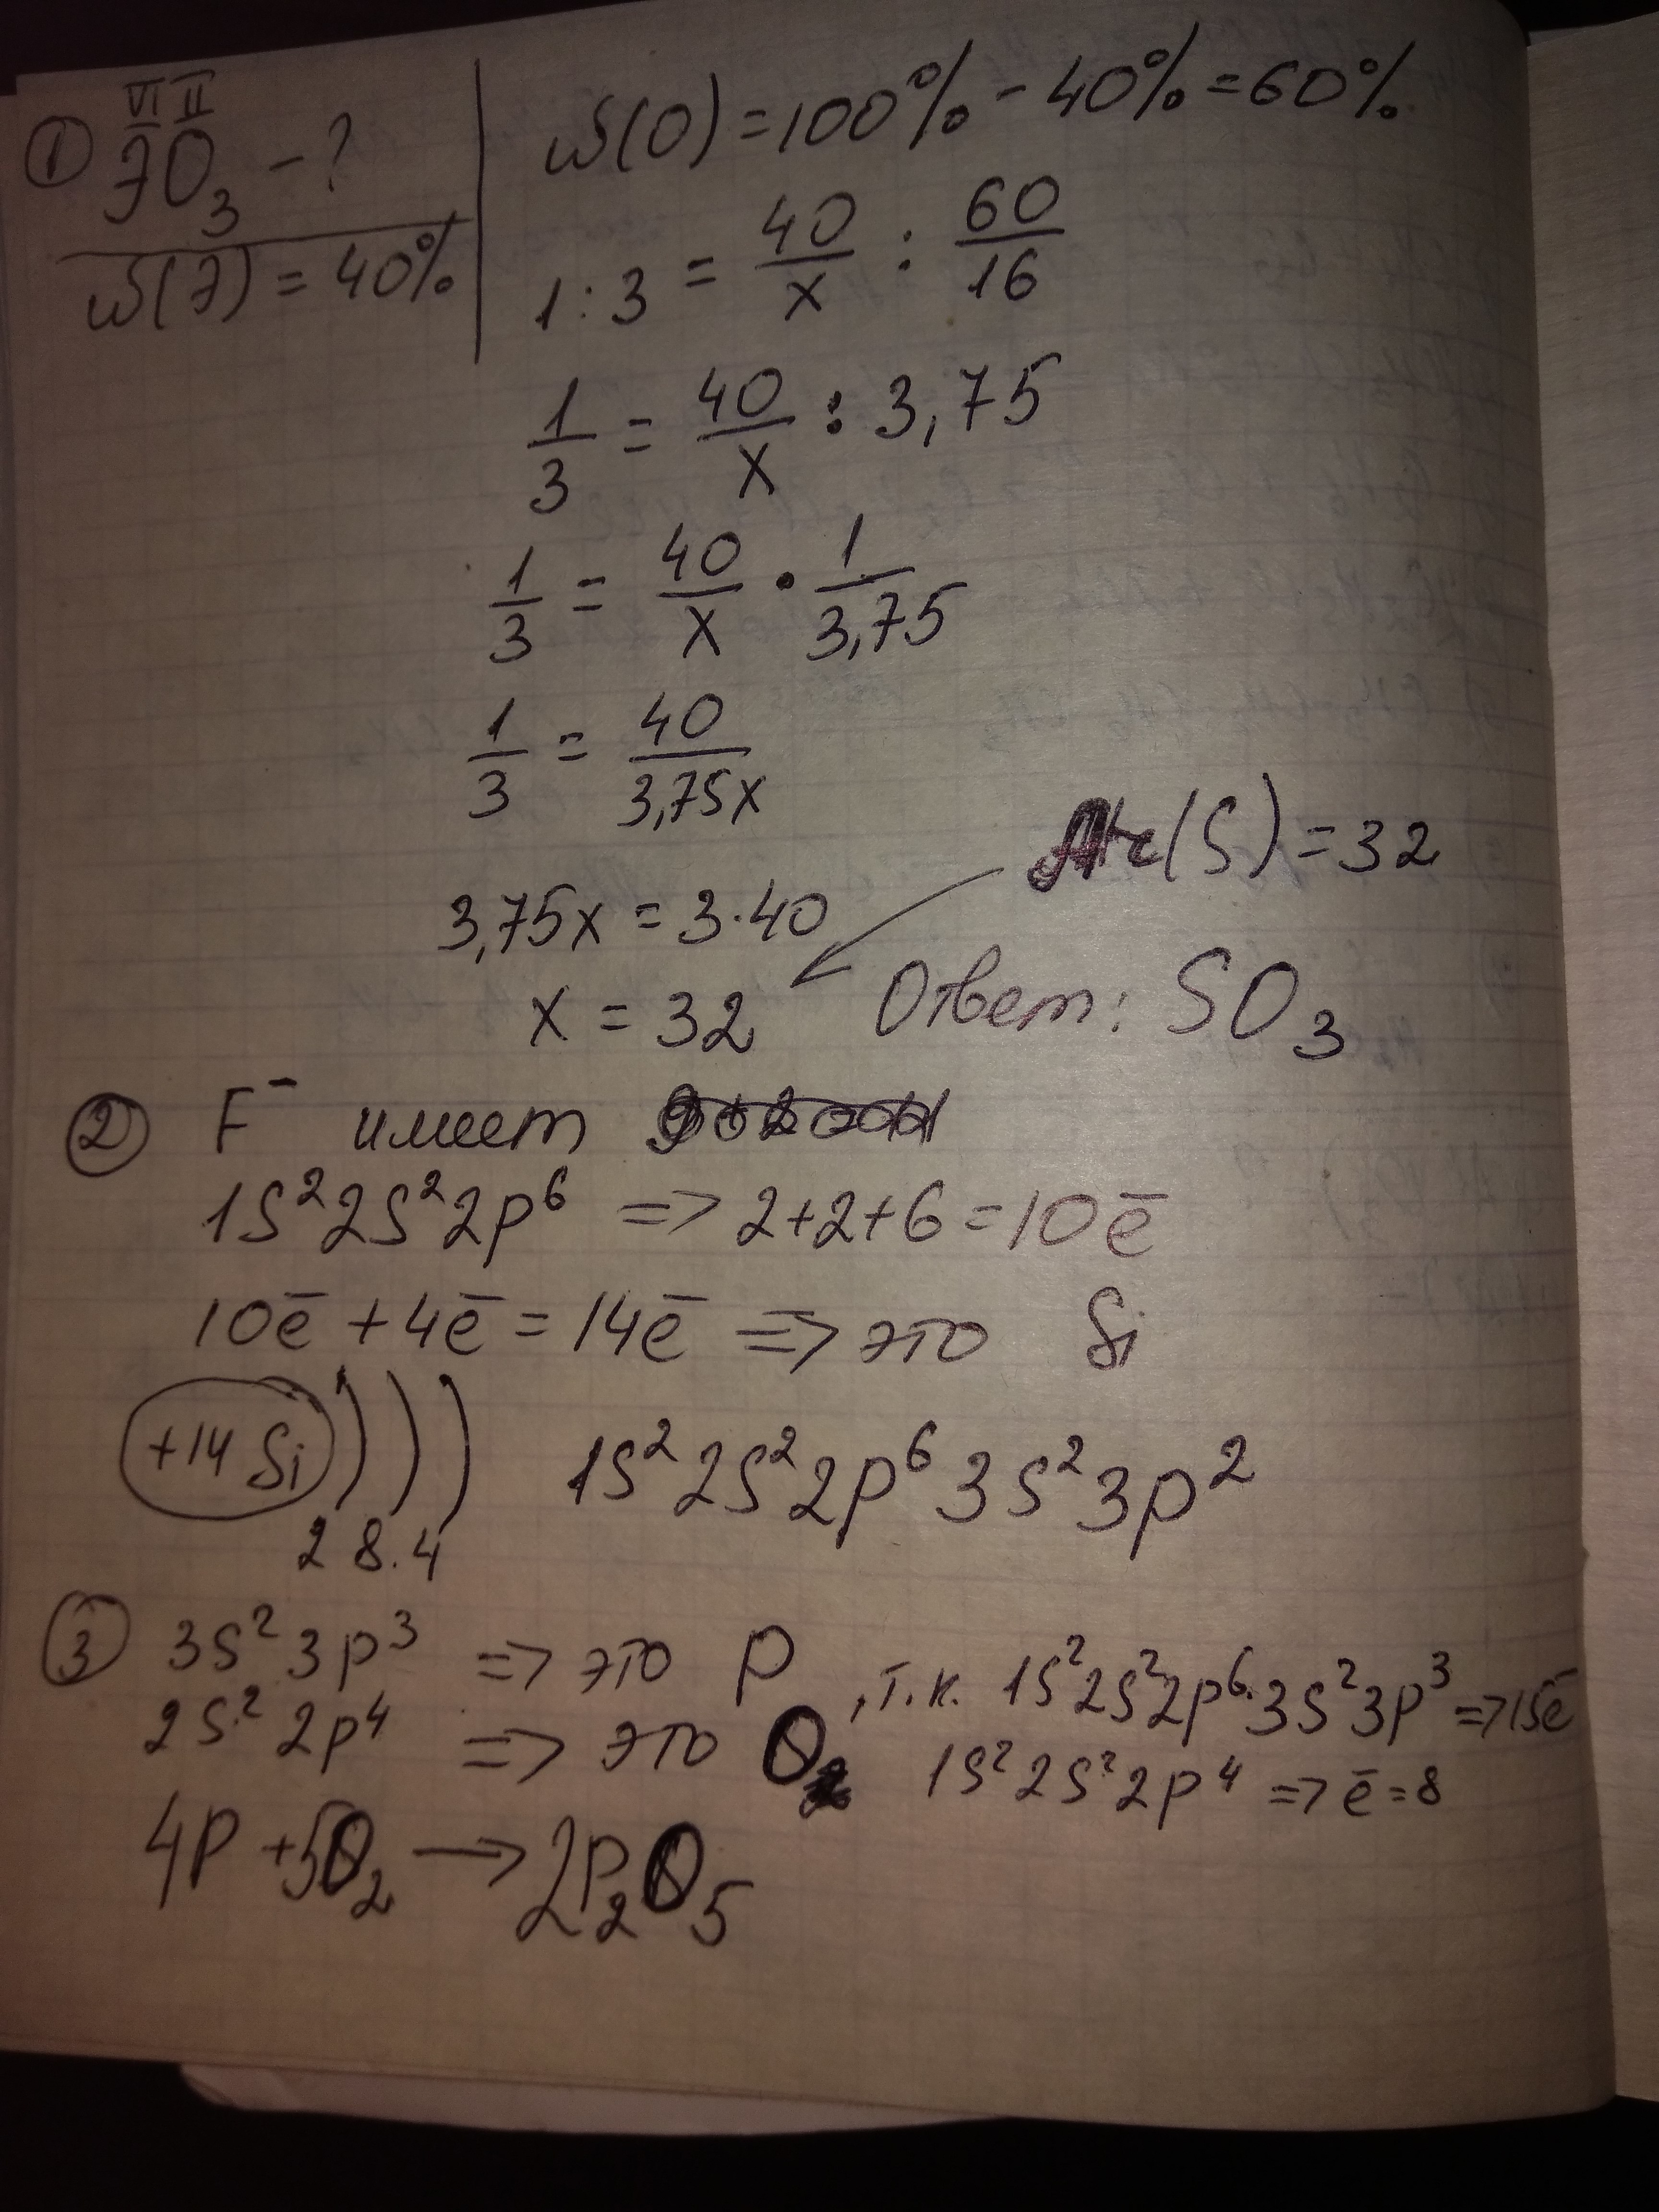 ① ЭO₃ - ?
VI II
ω(Э) = 40%
ω(O) = 100% - 40% = 60%
1 : 3 = 40/x : 60/16
1/3 = 40/x : 3,75
1/3 = 40/x · 1/3,75
1/3 = 40/3,75x
3,75x = 3·40
Ar(S) = 32
x = 32
Ответ: SO₃
② F⁻ имеет
1S²2S²2p⁶ => 2+2+6 = 10ē
10ē + 4ē = 14ē => это Si
+14 Si ) ) )
2 8. 4
1S²2S²2p⁶3S²3p²
③ 3S²3p³ => это P, т.к. 1S²2S²2p⁶3S²3p³ => 15ē
2S²2p⁴ => это O 1S²2S²2p⁴ => ē = 8
4P + 5O₂ → 2P₂O₅